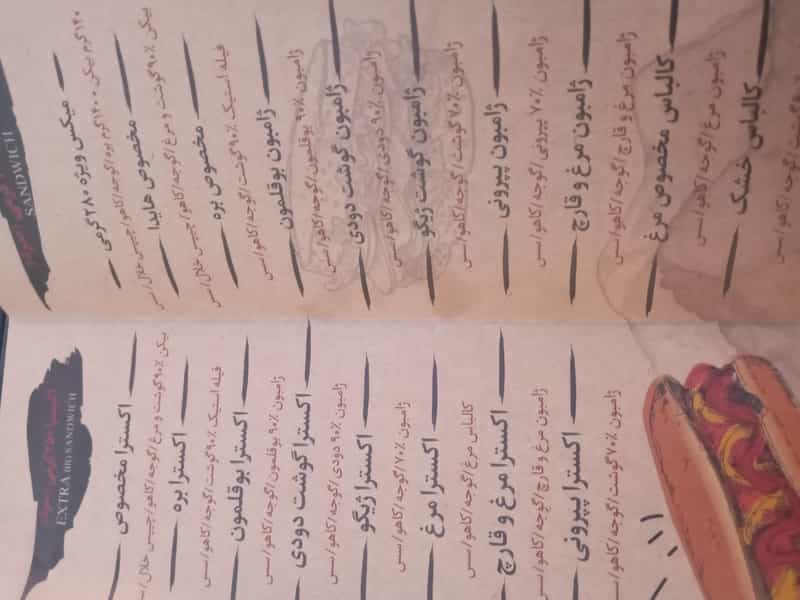 SANDWICH
میکس ویژه ۲۸۰ گرمی
۱۴۰ گرم بیکن + ۱۴۰ گرم بره/گوجه/کاهو/چیپس خلال/سس
مخصوص هایدا
بیکن ۹۰٪ گوشت و مرغ/گوجه/کاهو/چیپس خلال/سس
مخصوص بره
فیله استیک ۹۰٪ گوشت/گوجه/کاهو/سس
ژامبون بوقلمون
ژامبون ۹۰٪ بوقلمون/گوجه/کاهو/سس
ژامبون گوشت دودی
ژامبون ۹۰٪ دودی/گوجه/کاهو/سس
ژامبون گوشت ژیگو
ژامبون ۷۰٪ گوشت/گوجه/کاهو/سس
ژامبون پپرونی
ژامبون ۷۰٪ پپرونی/گوجه/کاهو/سس
ژامبون مرغ و قارچ
ژامبون مرغ و قارچ/گوجه/کاهو/سس
کالباس مخصوص مرغ
ژامبون مرغ/گوجه/کاهو/سس
کالباس خشک
EXTRA SANDWICH
اکسترا مخصوص
بیکن ۹۰٪ گوشت و مرغ/گوجه/کاهو/چیپس خلال/سس
اکسترا بره
فیله استیک ۹۰٪ گوشت/گوجه/کاهو/سس
اکسترا بوقلمون
ژامبون ۹۰٪ بوقلمون/گوجه/کاهو/سس
اکسترا گوشت دودی
ژامبون ۹۰٪ دودی/گوجه/کاهو/سس
اکسترا ژیگو
ژامبون ۷۰٪/گوجه/کاهو/سس
اکسترا مرغ
کالباس مرغ/گوجه/کاهو/سس
اکسترا مرغ و قارچ
ژامبون مرغ و قارچ/گوجه/کاهو/سس
اکسترا پپرونی
ژامبون ۷۰٪ گوشت/گوجه/کاهو/سس